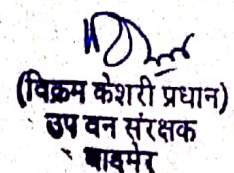 (विक्रम केशरी प्रधान)
उप वन संरक्षक
बाड़मेर